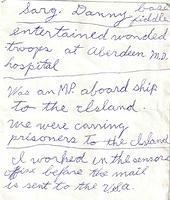 Sarg. Danny base
fiddle
entertained wonded
troops at Aberdeen M.D.
hospital
Was an M.P. aboard ship
to the island.
We were carring
prisoners to the island
I worked in the sensors
office before the mail
is sent to the USA.